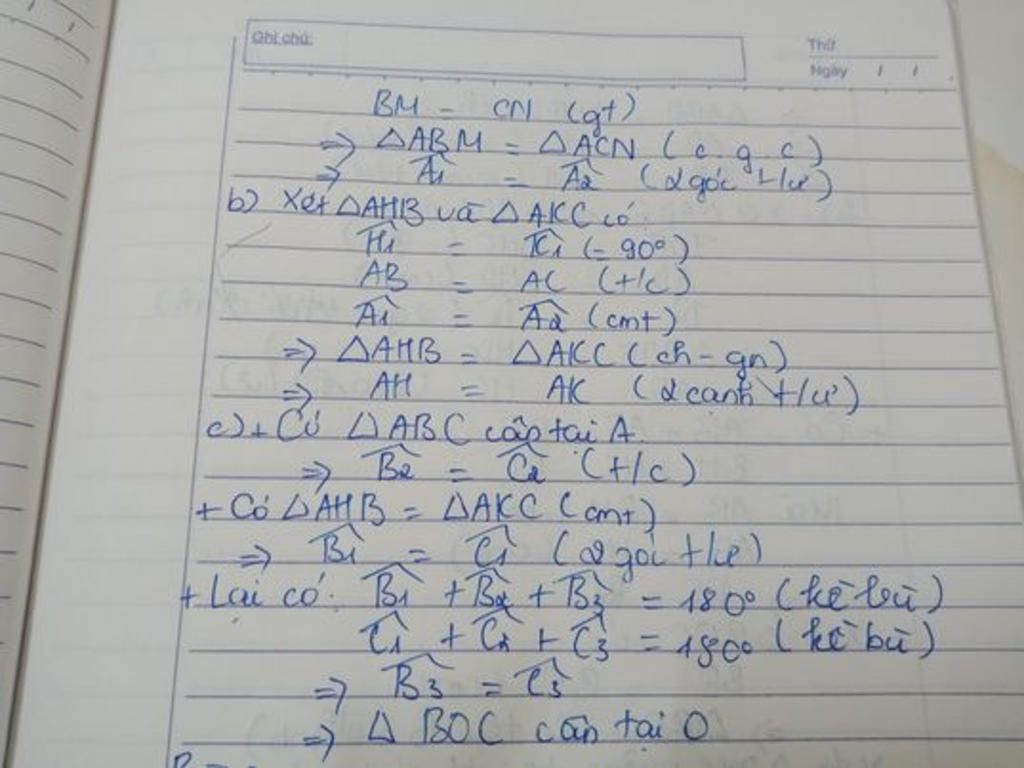 Ghi chú:
Thứ
Ngày / /
BM = CN (gt)
=> △ABM = △ACN (c.g.c)
=> Â1 = Â2 (2 góc t/ư)
b) Xét △AHB và △AKC có:
Ĥ1 = K̂1 (= 90°)
AB = AC (t/c)
Â1 = Â2 (cmt)
=> △AHB = △AKC (ch - gn)
=> AH = AK (2 cạnh t/ư)
c) + Có △ABC cân tại A.
=> B̂2 = Ĉ2 (t/c)
+ Có △AHB = △AKC (cmt)
=> B̂1 = Ĉ1 (2 góc t/ư)
+ Lại có: B̂1 + B̂2 + B̂3 = 180° (kề bù)
Ĉ1 + Ĉ2 + Ĉ3 = 180° (kề bù)
=> B̂3 = Ĉ3
=> △ BOC cân tại O